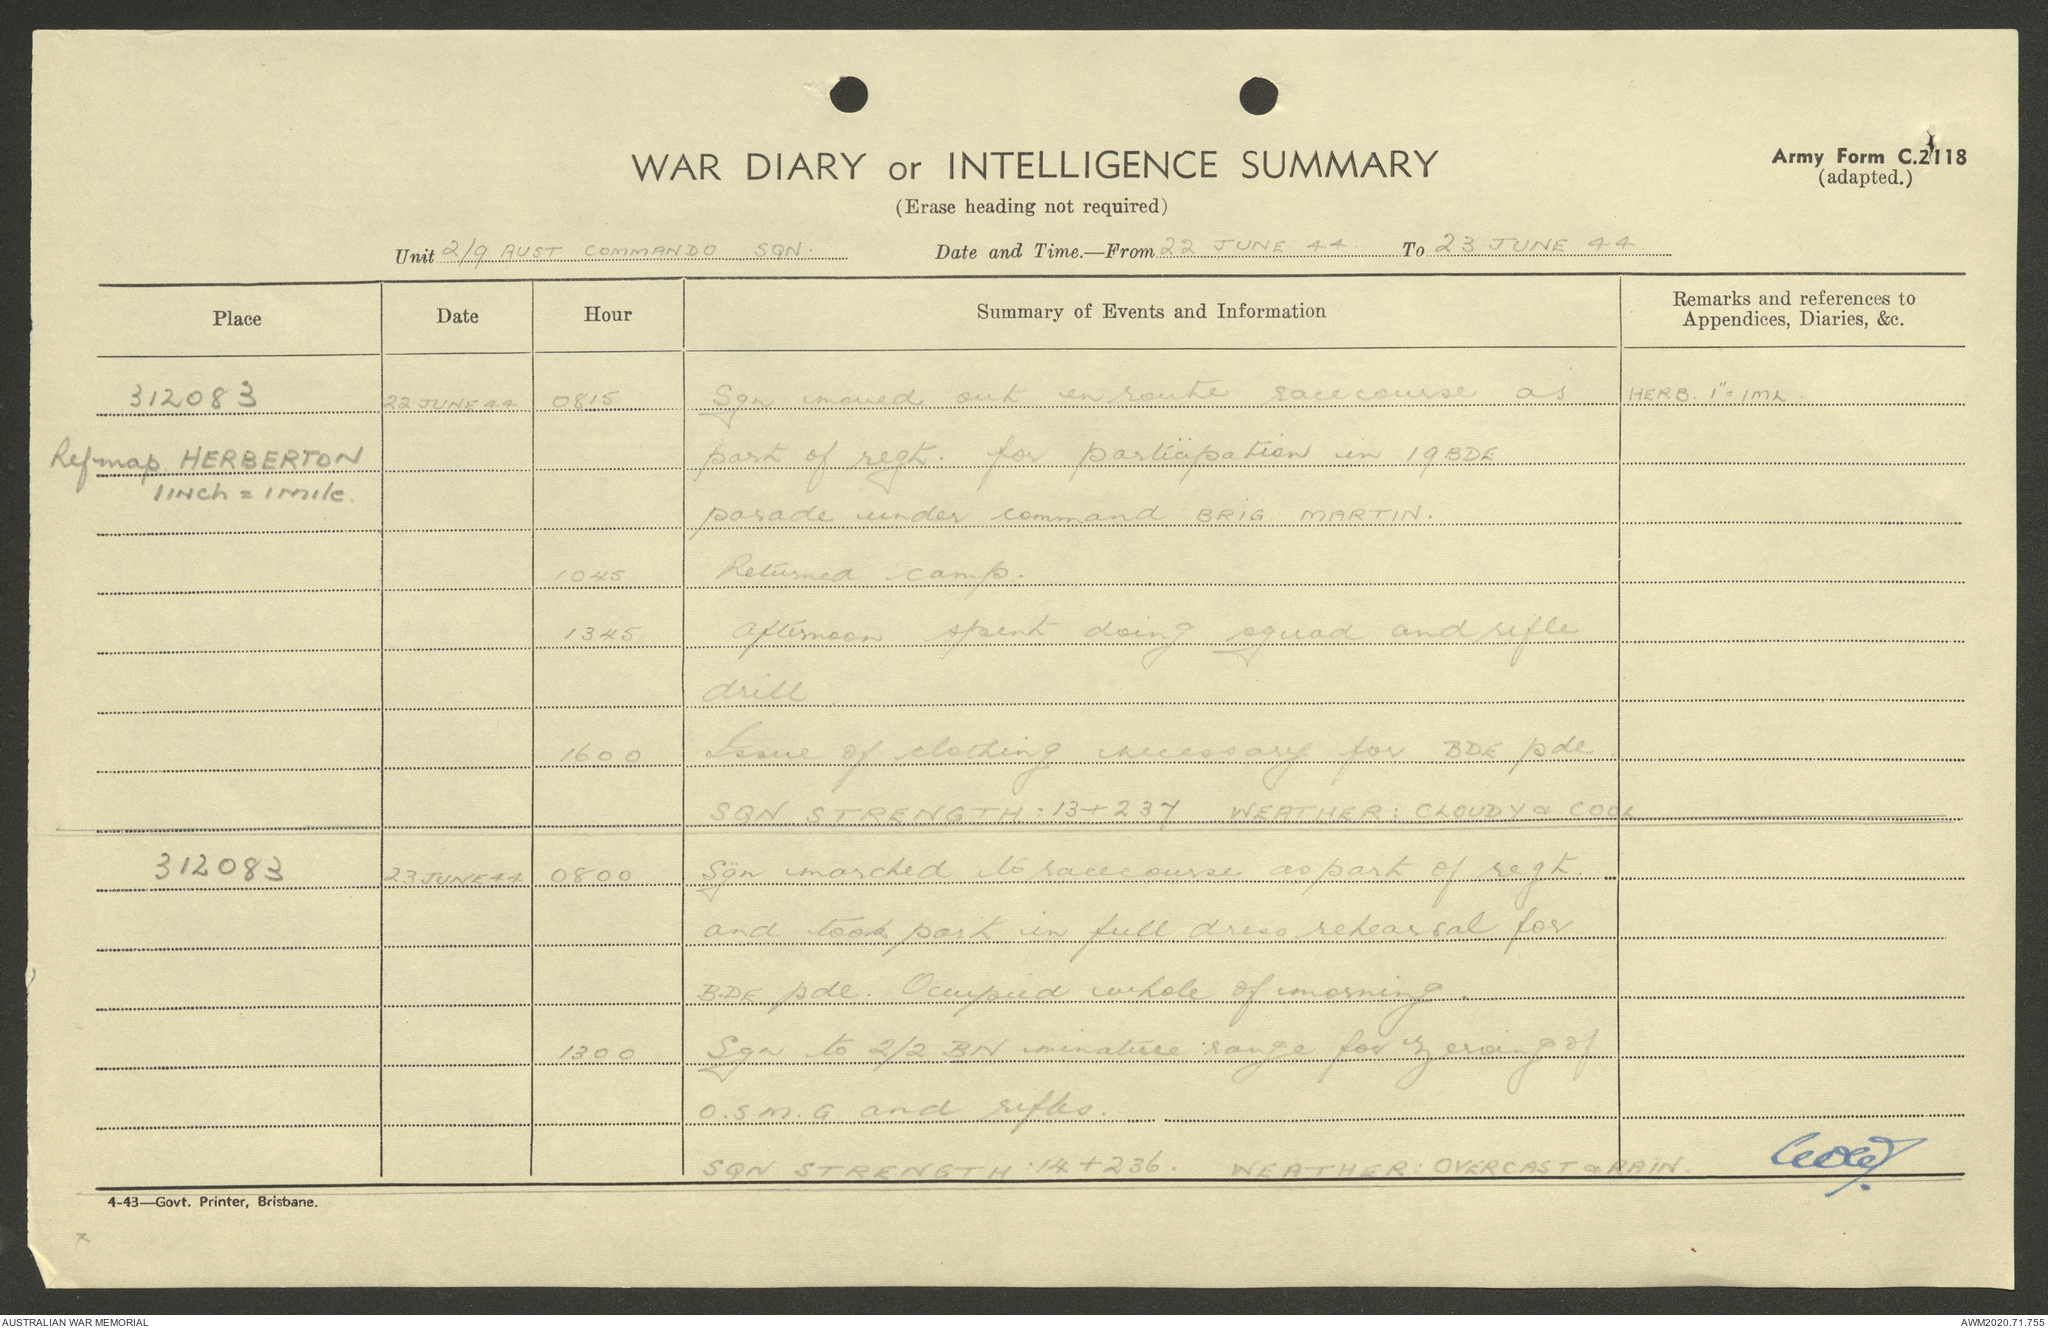 WAR DIARY or INTELLIGENCE SUMMARY
Army Form C.2118
(adapted.)
(Erase heading not required)
Unit 2/9 AUST COMMANDO SQN. Date and Time.—From 22 JUNE 44. To 23 JUNE 44.
Place Date Hour Summary of Events and Information Remarks and references to
Appendices, Diaries, &c.
312083 22 JUNE 44 0815 Sqn moved out enroute racecourse as HERB. 1"=1ML
Ref map HERBERTON part of regt. for participation in 19 BDE
1 INCH = 1 MILE.
parade under command BRIG MARTIN.
1045 Returned camp.
1345 Afternoon spent doing squad and rifle
drill
1600 Issue of clothing necessary for BDE pde.
SQN STRENGTH: 13+237 WEATHER: CLOUDY & COOL
312083 23 JUNE 44 0800 Sqn marched to racecourse as part of regt.
and took part in full dress rehearsal for
BDE pde. Occupied whole of morning.
1300 Sqn to 2/2 BN minature range for zeroing of
O.S.M.G and rifles.
SQN STRENGTH: 14+236. WEATHER: OVERCAST & RAIN.
4-43—Govt. Printer, Brisbane.
x
AUSTRALIAN WAR MEMORIAL AWM2020.71.755